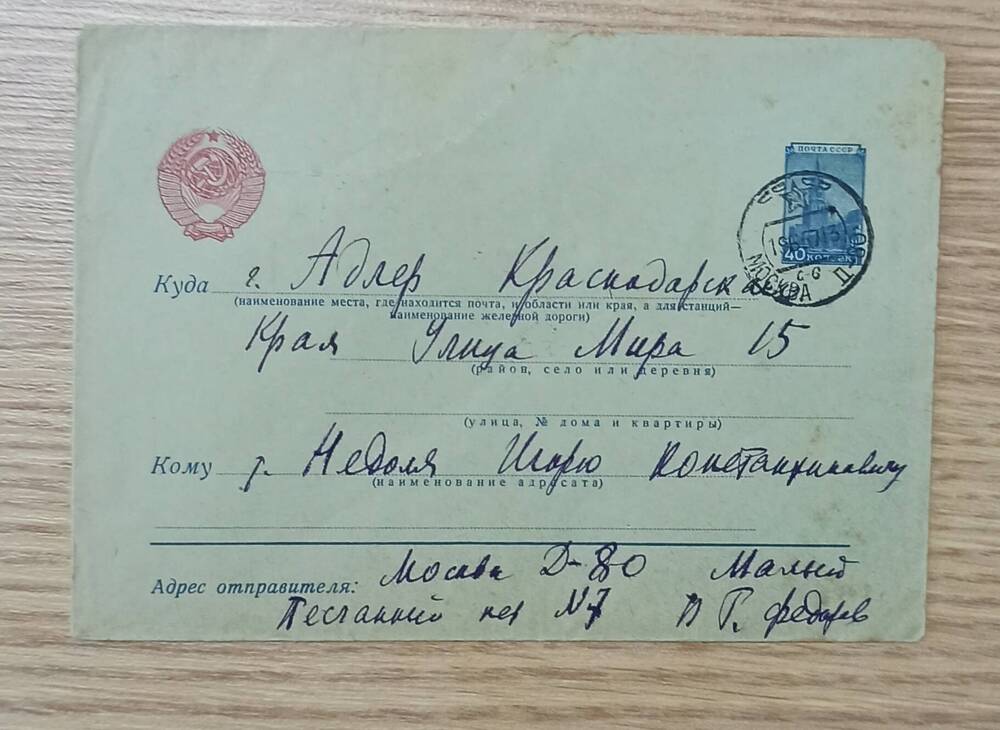 ПОЧТА СССР
40 КОПЕЕК
МОСКВА
Куда г. Адлер Краснодарск
(наименование места, где находится почта, и области или края, а для станций—
наименование железной дороги)
Края Улица Мира 15
(район, село или деревня)
(улица, № дома и квартиры)
Кому т. Недоля Игорю Константиновичу
(наименование адресата)
Адрес отправителя: Москва Д-80 Малый
Песчанный пер N7 П Г. Федоров